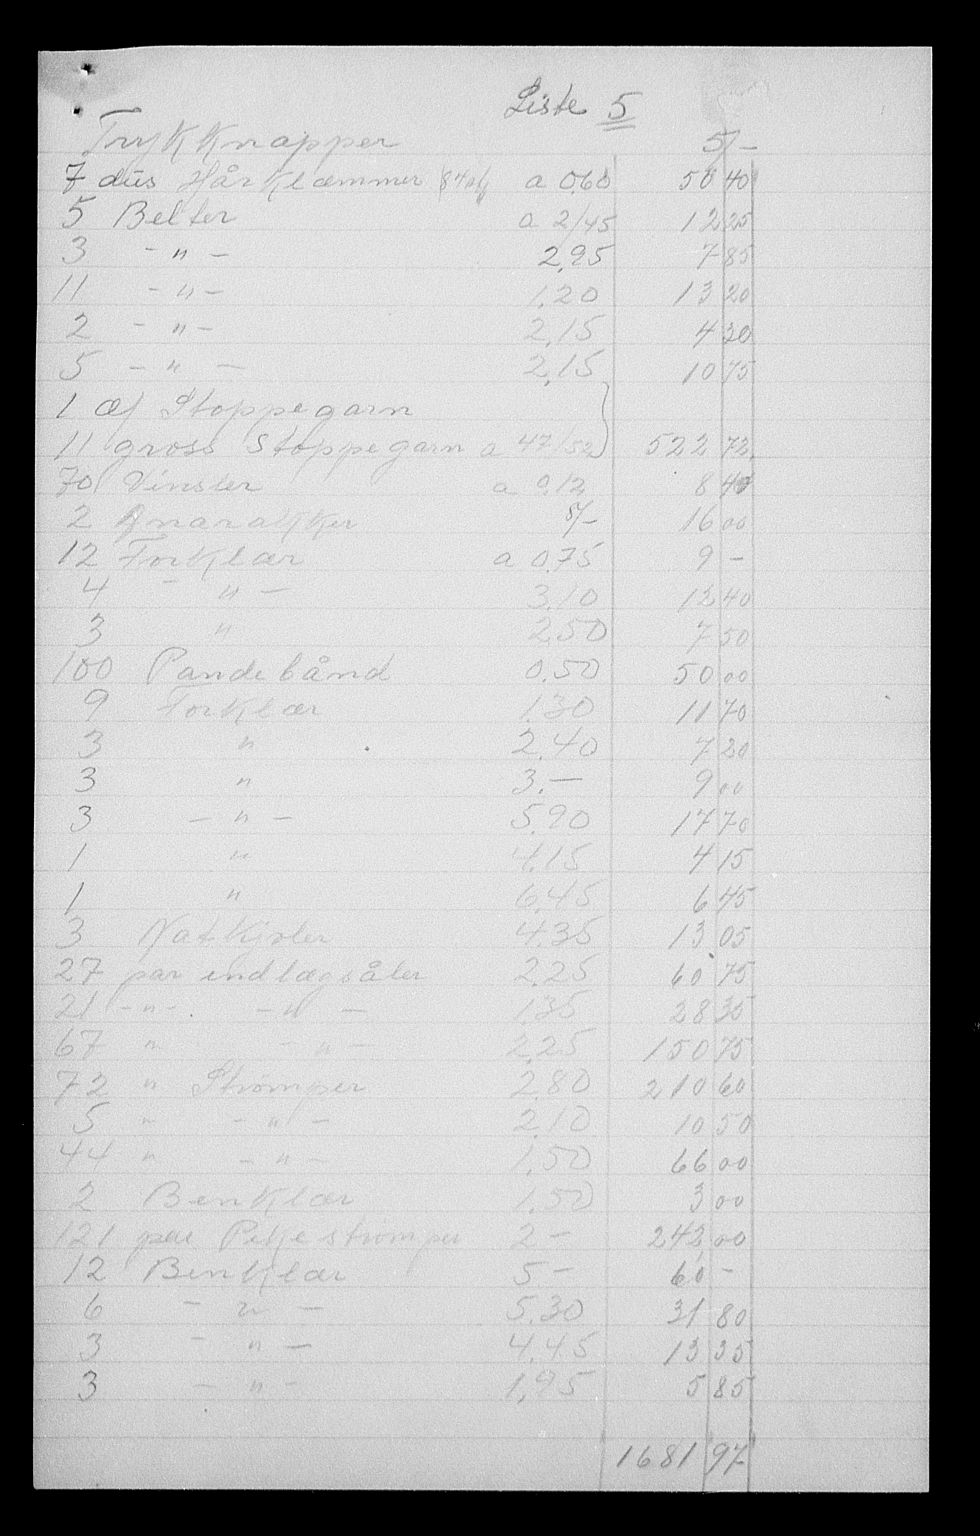 Liste 5
Trykknapper 5/-
7 dus Hårklæmmer a 0.60 50 40
5 Belter a 2/45 12 25
3 -"- 2,95 7 85
11 -"- 1.20 13 20
2 -"- 2,15 4 30
5 -"- 2,15 10 75
1 Stoppegarn
11 gross Stoppegarn a 47/52 522 72
70 Vinsler a 0,12 8 40
2 8/- 16 00
12 Forklær a 0.75 9 -
4 -"- 3,10 12 40
3 " 2,50 7 50
100 Pandebånd 0.50 50 00
9 Forklær 1.30 11 70
3 " 2.40 7 20
3 " 3.- 9 00
3 -"- 5.90 17 70
1 " 4.15 4 15
1 " 6.45 6 45
3 Natkjoler 4.35 13 05
27 par indlægsåler 2.25 60 75
21 -"- -"- 1.35 28 35
67 " -"- 2.25 150 75
72 " Strømper 2.80 210 60
5 " -"- 2.10 10 50
44 " -"- 1,50 66 00
2 Benklær 1.50 3 00
121 par Pikestrømper 2- 242 00
12 Benklær 5- 60 -
6 -"- 5.30 31 80
3 -"- 4.45 13 35
3 -"- 1,95 5 85
1681 97